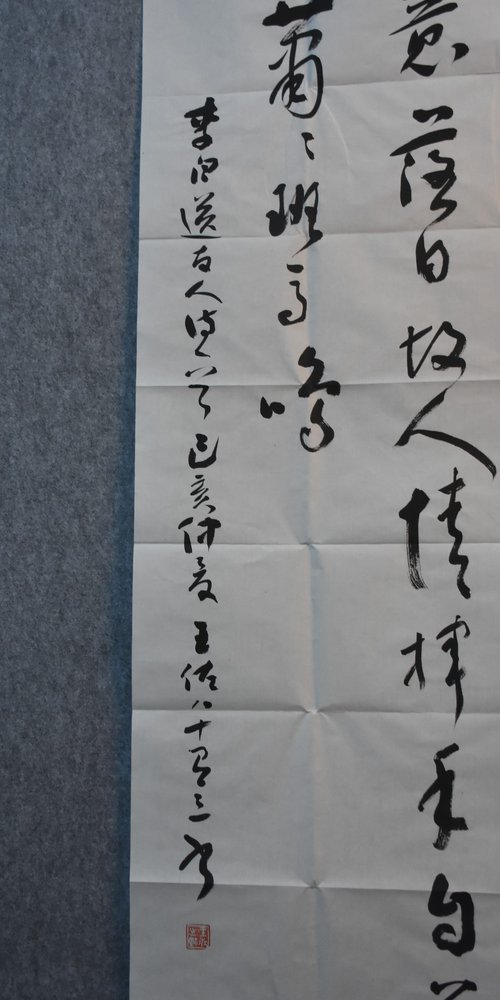 意落日故人情揮手自
蕭〻班馬鳴
李白送友人詩一首己亥仲夏王佐八十有三書